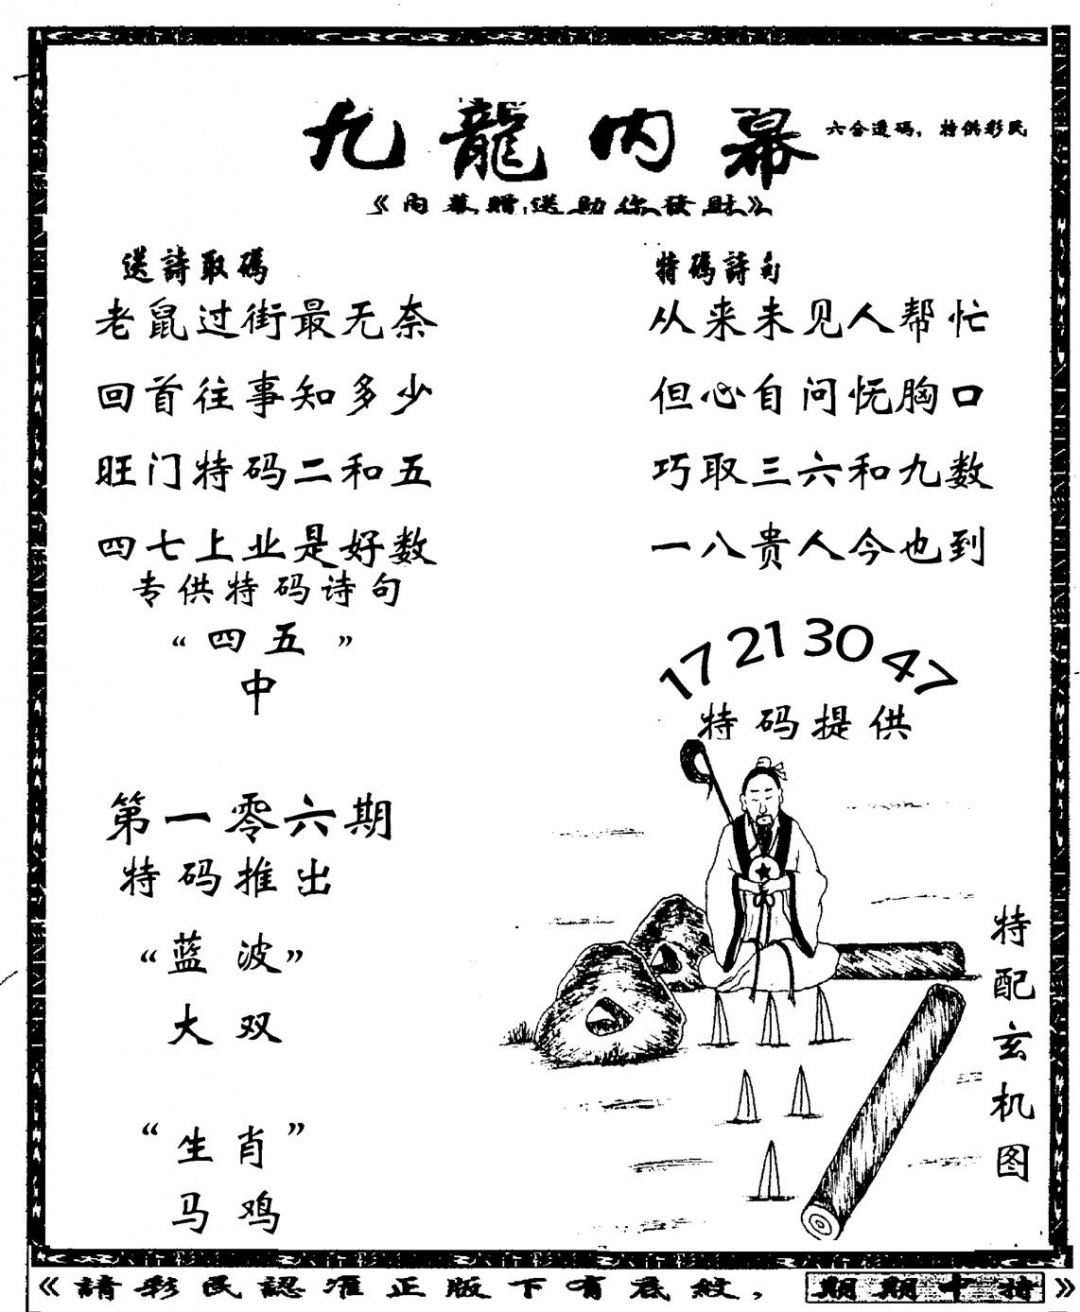 九龍内幕
六合透码，特供彩民
《内幕赠送助你發财》
送詩取碼
老鼠过街最无奈
回首往事知多少
旺门特码二和五
四七上业是好数
专供特码诗句
“四五”
中
第一零六期
特码推出
“蓝波”
大双
“生肖”
马鸡
特碼詩句
从来未见人帮忙
但心自问怃胸口
巧取三六和九数
一八贵人今也到
17 21 30 47
特码提供
特配玄机图
《請彩民認准正版下有底紋，期期中特》